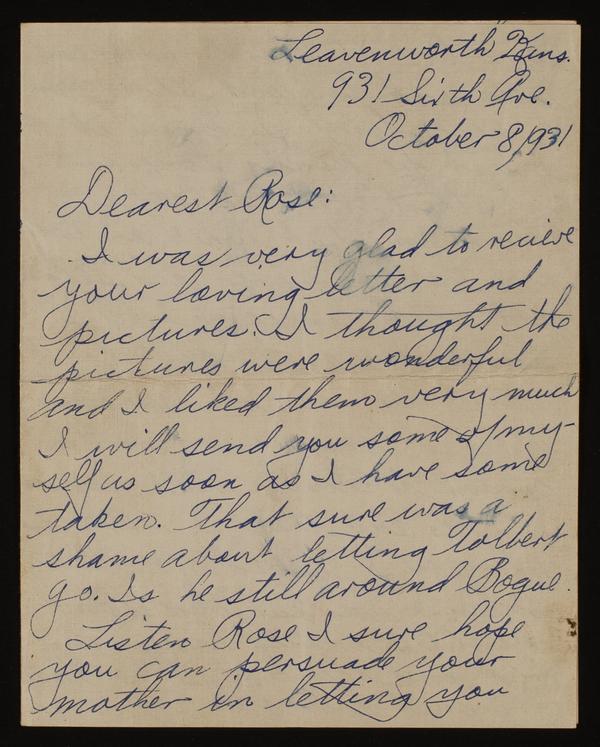 Leavenworth Kans.
931 Sixth Ave.
October 8, 1931
Dearest Rose:
I was very glad to recieve
your loving letter and
pictures. I thought the
pictures were wonderful
and I liked them very much
I will send you some of my-
self as soon as I have some
taken. That sure was a
shame about letting Tolbert
go. Is he still around Bogue.
Listen Rose I sure hope
you can persuade your
mother in letting you